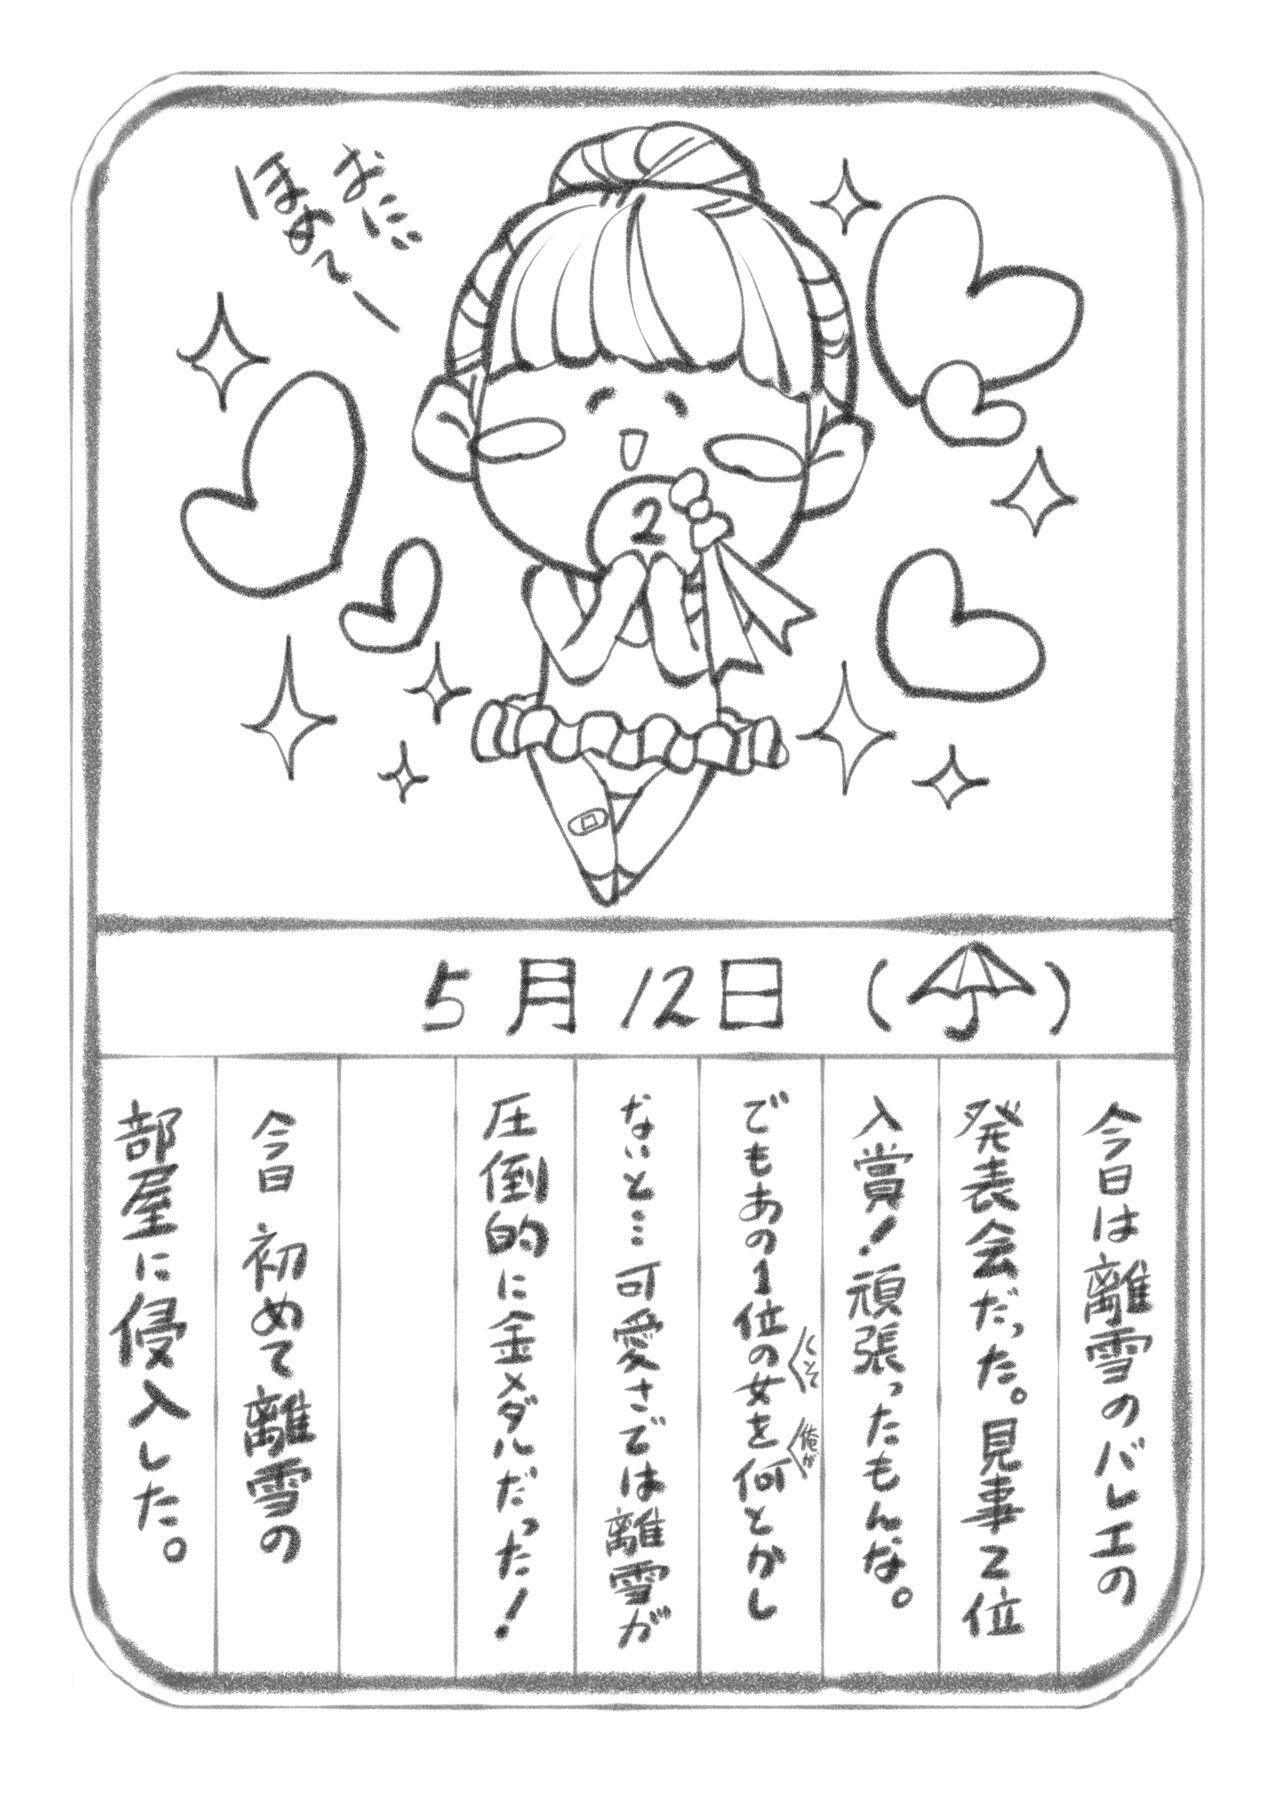 おに
ほめ〜ー
2
5月12日（）
今日は離雪のバレエの
発表会だった。見事2位
入賞！頑張ったもんな。
でもあの1位の女を何とかし
くそて
俺が
ないと…可愛さでは離雪が
圧倒的に金メダルだった！
今日 初めて離雪の
部屋に侵入した。